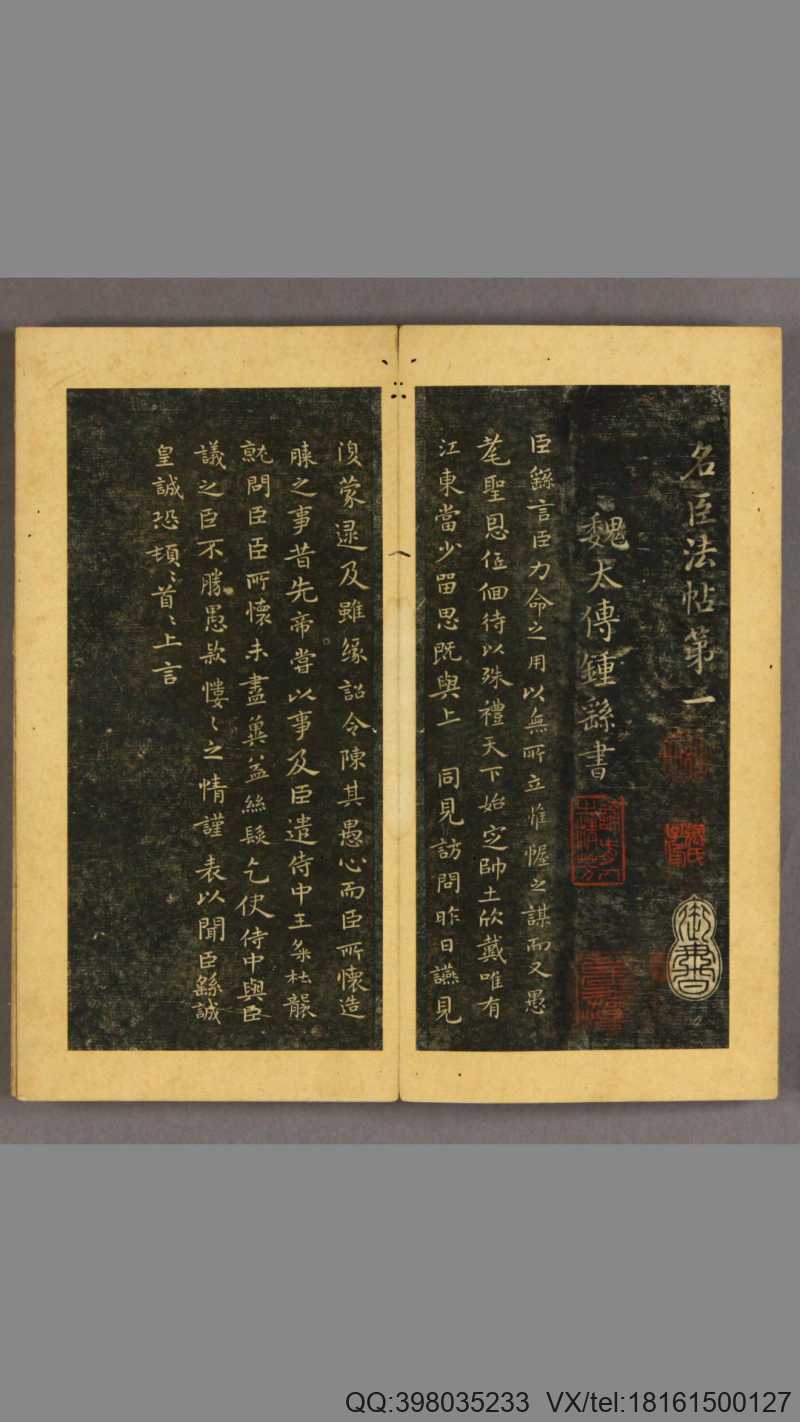 名臣法帖第一
魏太傅鍾繇書
臣繇言臣力命之用以無所立惟幄之謀而又愚
耄聖恩低佪待以殊禮天下始定帥土欣戴唯有
江東當少留思既與上 同見訪問昨日讌見
復蒙逮及雖緣詔令陳其愚心而臣所懷造
膝之事昔先帝嘗以事及臣遣侍中王粲杜襲
就問臣臣所懷未盡冀益絲髮乞使侍中與臣
議之臣不勝愚款慺〻之情謹表以聞臣繇誠
皇誠恐頓〻首〻上言
QQ:398035233 VX/tel:18161500127